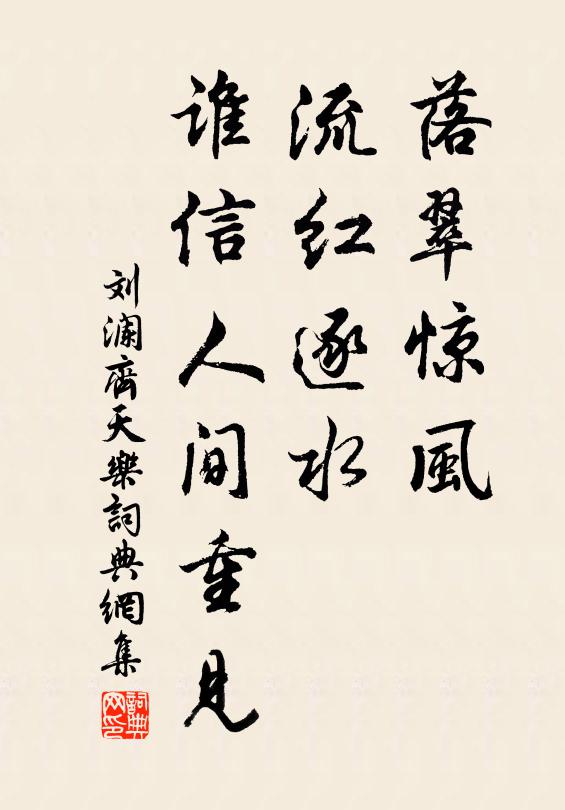 落翠惊風
流红逐水
谁信人间重见
刘澜齊天樂詞典網集
詞典
网印